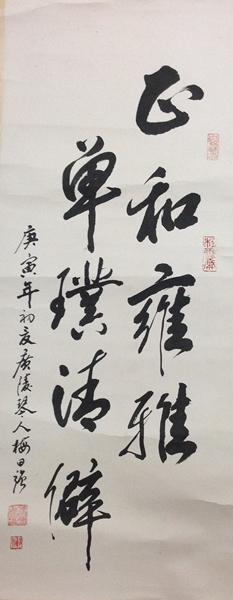 正和雍雅
单璞清僻
庚寅年初夏廣陵琴人梅曰强